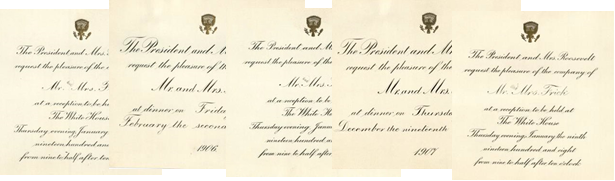 The President and Mrs.
request the pleasure of the
Mr. and Mrs. F
at a reception to be he
The White Hou
Thursday evening, January
nineteen hundred and
from nine to half after ten
The President and M
request the pleasure of th
Mr. and Mrs.
at dinner on Frida
February the second
1906
The President and M
request the pleasure of
Mr. and Mrs
at a reception to be
The White H
Thursday evening, Janu
nineteen hundred a
from nine to half after
The President and M
request the pleasure of the
Mr. and Mrs.
at dinner on Thursda
December the nineteenth
1907
The President and Mrs. Roosevelt
request the pleasure of the company of
Mr. and Mrs. Frick
at a reception to be held at
The White House
Thursday evening, January the ninth
nineteen hundred and
from nine to half after ten o'clock